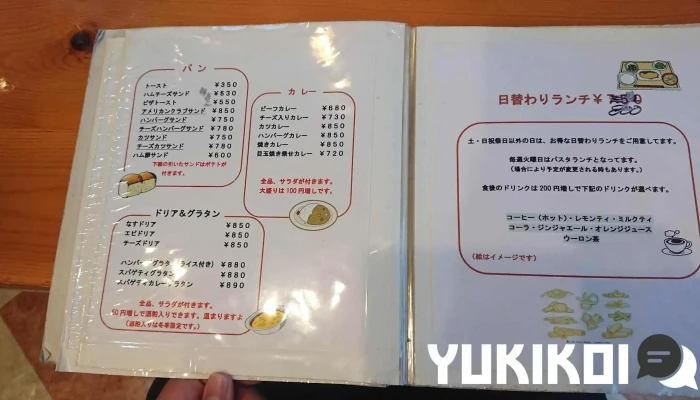 パン
トースト ￥350
ハムチーズサンド ￥530
ピザトースト ￥550
アメリカンクラブサンド ￥850
ハンバーグサンド ￥750
チーズハンバーグサンド ￥780
カツサンド ￥750
チーズカツサンド ￥780
ハム野サンド ￥600
下線の引いたサンドはポテトが
付きます。
カレー
ビーフカレー ￥680
チーズ入りカレー ￥730
カツカレー ￥850
ハンバーグカレー ￥850
焼きカレー ￥850
目玉焼き乗せカレー ￥720
全品、サラダが付きます。
大盛りは100円増しです。
ドリア＆グラタン
なすドリア ￥850
エビドリア ￥850
チーズドリア ￥850
ハンバーググラタン（ライス付き） ￥880
スパゲティグラタン ￥880
スパゲティカレーグラタン ￥890
全品、サラダが付きます。
50円増しで酒粕入りできます。温まりますよ
（酒粕入りは冬季限定です。）
日替わりランチ￥750
800
土・日祝祭日以外の日は、お得な日替わりランチをご用意してます。
毎週火曜日はパスタランチとなってます。
（場合により予定が変更される時もあります。）
食後のドリンクは200円増しで下記のドリンクが選べます。
コーヒー（ホット）・レモンティ・ミルクティ
コーラ・ジンジャエール・オレンジジュース
ウーロン茶
（絵はイメージです）
YUKIKOI